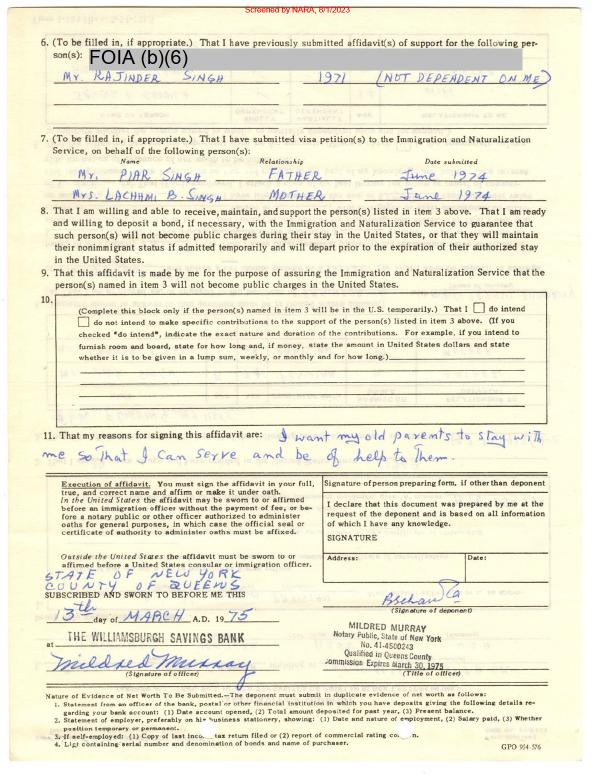 Screened by NARA, 8/1/2023
6. (To be filled in, if appropriate.) That I have previously submitted affidavit(s) of support for the following per-
son(s): FOIA (b)(6)
Mr. RAJINDER SINGH 1971 (NOT DEPENDENT ON ME)
7. (To be filled in, if appropriate.) That I have submitted visa petition(s) to the Immigration and Naturalization
Service, on behalf of the following person(s):
Name Relationship Date submitted
Mr. PIAR SINGH FATHER June 1974
Mrs. LACHHMI B. SINGH MOTHER June 1974
8. That I am willing and able to receive, maintain, and support the person(s) listed in item 3 above. That I am ready
and willing to deposit a bond, if necessary, with the Immigration and Naturalization Service to guarantee that
such person(s) will not become public charges during their stay in the United States, or that they will maintain
their nonimmigrant status if admitted temporarily and will depart prior to the expiration of their authorized stay
in the United States.
9. That this affidavit is made by me for the purpose of assuring the Immigration and Naturalization Service that the
person(s) named in item 3 will not become public charges in the United States.
10.
(Complete this block only if the person(s) named in item 3 will be in the U.S. temporarily.) That I do intend
do not intend to make specific contributions to the support of the person(s) listed in item 3 above. (If you
checked "do intend", indicate the exact nature and duration of the contributions. For example, if you intend to
furnish room and board, state for how long and, if money, state the amount in United States dollars and state
whether it is to be given in a lump sum, weekly, or monthly and for how long.)
11. That my reasons for signing this affidavit are: I want my old parents to stay with
me so that I can serve and be of help to them.
Execution of affidavit. You must sign the affidavit in your full,
true, and correct name and affirm or make it under oath.
In the United States the affidavit may be sworn to or affirmed
before an immigration officer without the payment of fee, or be-
fore a notary public or other officer authorized to administer
oaths for general purposes, in which case the official seal or
certificate of authority to administer oaths must be affixed.
Outside the United States the affidavit must be sworn to or
affirmed before a United States consular or immigration officer.
STATE OF NEW YORK
COUNTY OF QUEENS
SUBSCRIBED AND SWORN TO BEFORE ME THIS
13th day of MARCH A.D. 1975
at THE WILLIAMSBURGH SAVINGS BANK
Mildred Murray
(Signature of officer)
Signature of person preparing form, if other than deponent
I declare that this document was prepared by me at the
request of the deponent and is based on all information
of which I have any knowledge.
SIGNATURE
Address: Date:
(Signature of deponent)
MILDRED MURRAY
Notary Public, State of New York
No. 41-4500243
Qualified in Queens County
Commission Expires March 30, 1975
(Title of officer)
Nature of Evidence of Net Worth To Be Submitted.—The deponent must submit in duplicate evidence of net worth as follows:
1. Statement from an officer of the bank, postal or other financial institution in which you have deposits giving the following details re-
garding your bank account: (1) Date account opened, (2) Total amount deposited for past year, (3) Present balance.
2. Statement of employer, preferably on business stationery, showing: (1) Date and nature of employment, (2) Salary paid, (3) Whether
position temporary or permanent.
3. If self-employed: (1) Copy of last tax return filed or (2) report of commercial rating
4. List containing serial number and denomination of bonds and name of purchaser.
GPO 954-576